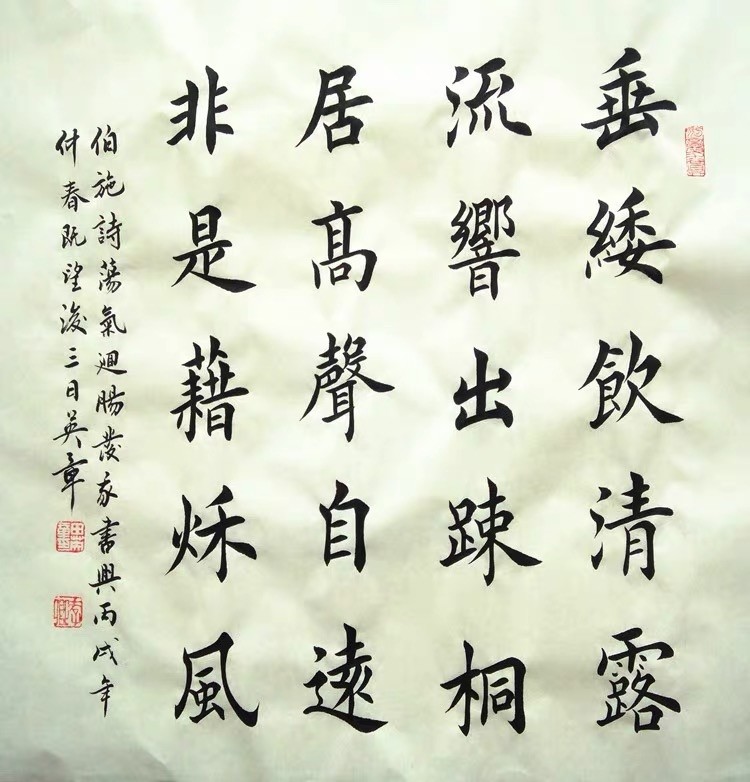 垂緌飲清露
流響出踈桐
居高聲自遠
非是藉秌風
伯施詩蕩氣廻腸發我書興丙戌年
仲春既望後三日英章